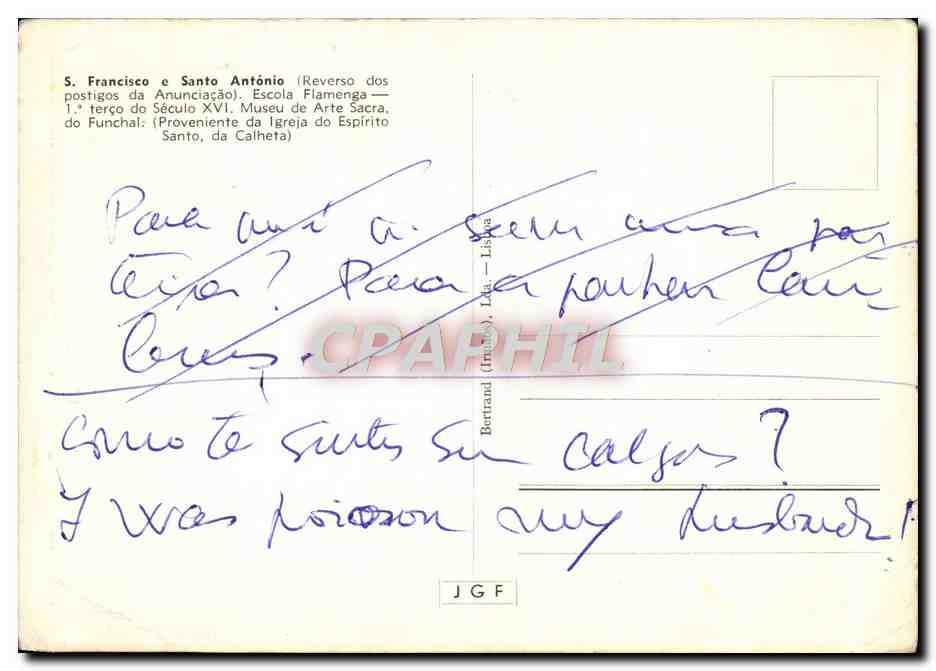 S. Francisco e Santo António (Reverso dos
postigos da Anunciação). Escola Flamenga —
1.º terço do Século XVI. Museu de Arte Sacra,
do Funchal: (Proveniente da Igreja do Espírito
Santo, da Calheta)
Bertrand (Irmãos), Lda. — Lisboa
Para
? Para a
CPAPHIL
Como te sentes sem calças?
I was poiooson my husband!
J G F